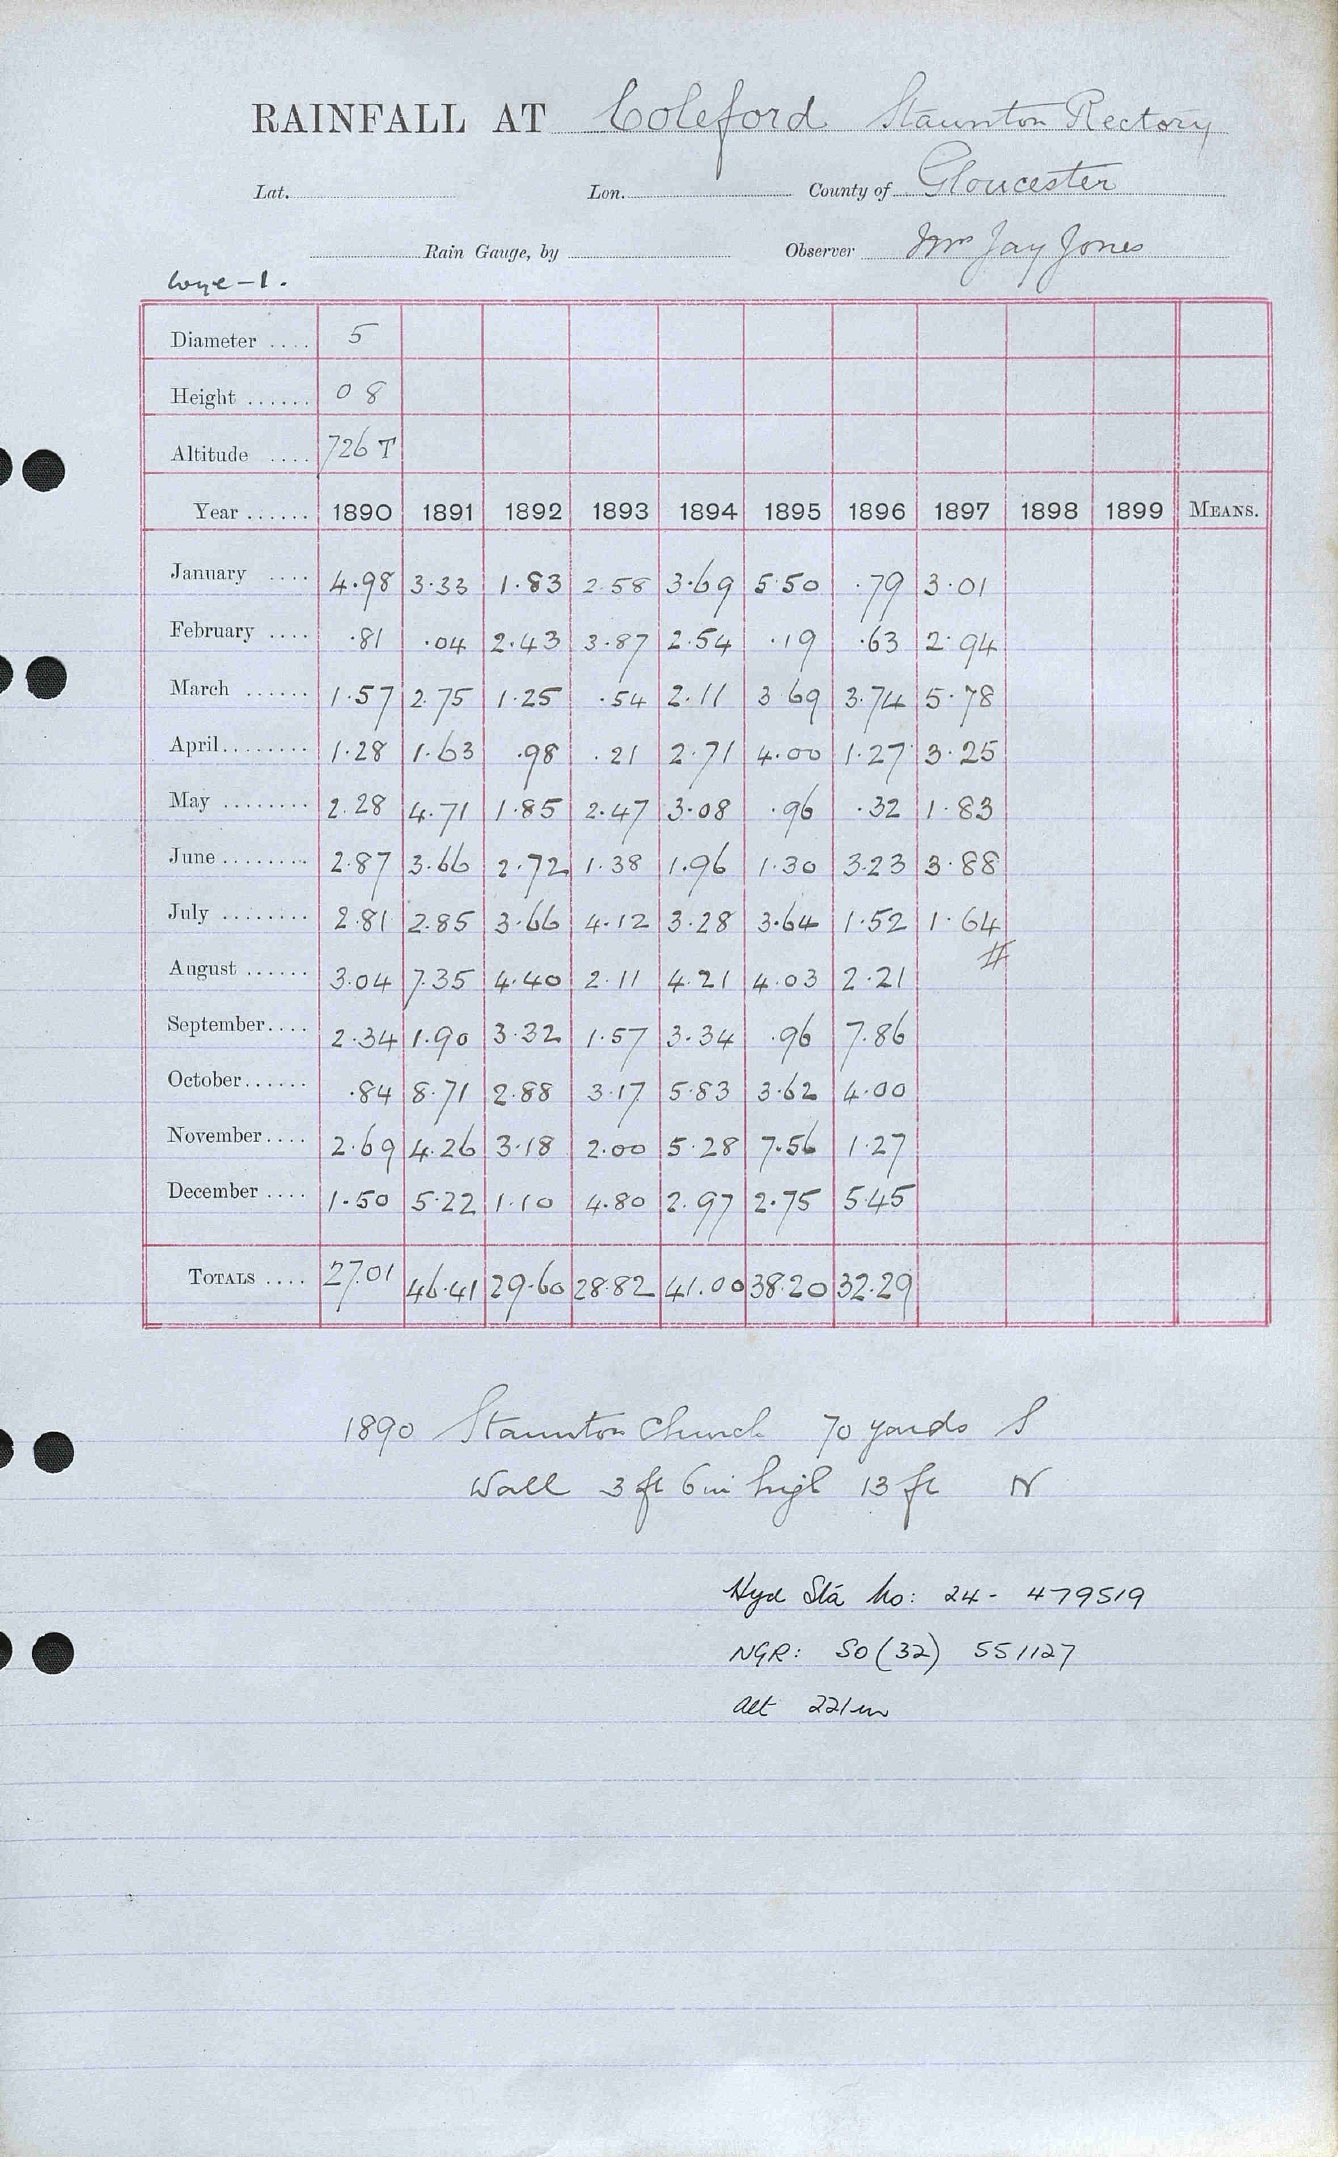 RAINFALL AT Coleford Staunton Rectory
Lat. Lon. County of Gloucester
Rain Gauge, by Observer Mrs Jay Jones
Wye-1.
Diameter .... 5
Height ...... 0 8
Altitude .... 726 T
Year ...... 1890 1891 1892 1893 1894 1895 1896 1897 1898 1899 MEANS.
January .... 4.98 3.33 1.83 2.58 3.69 5.50 .79 3.01
February .... .81 .04 2.43 3.87 2.54 .19 .63 2.94
March ...... 1.57 2.75 1.25 .54 2.11 3.69 3.74 5.78
April........ 1.28 1.63 .98 .21 2.71 4.00 1.27 3.25
May ........ 2.28 4.71 1.85 2.47 3.08 .96 .32 1.83
June ........ 2.87 3.66 2.72 1.38 1.96 1.30 3.23 3.88
July ........ 2.81 2.85 3.66 4.12 3.28 3.64 1.52 1.64
#
August ...... 3.04 7.35 4.40 2.11 4.21 4.03 2.21
September.... 2.34 1.90 3.32 1.57 3.34 .96 7.86
October...... .84 8.71 2.88 3.17 5.83 3.62 4.00
November.... 2.69 4.26 3.18 2.00 5.28 7.56 1.27
December .... 1.50 5.22 1.10 4.80 2.97 2.75 5.45
TOTALS .... 27.01 46.41 29.60 28.82 41.00 38.20 32.29
1890 Staunton Church 70 yards S
Wall 3 ft 6 in high 13 ft N
Hyd Sta No: 24- 479519
NGR: SO (32) 551127
Alt 221m